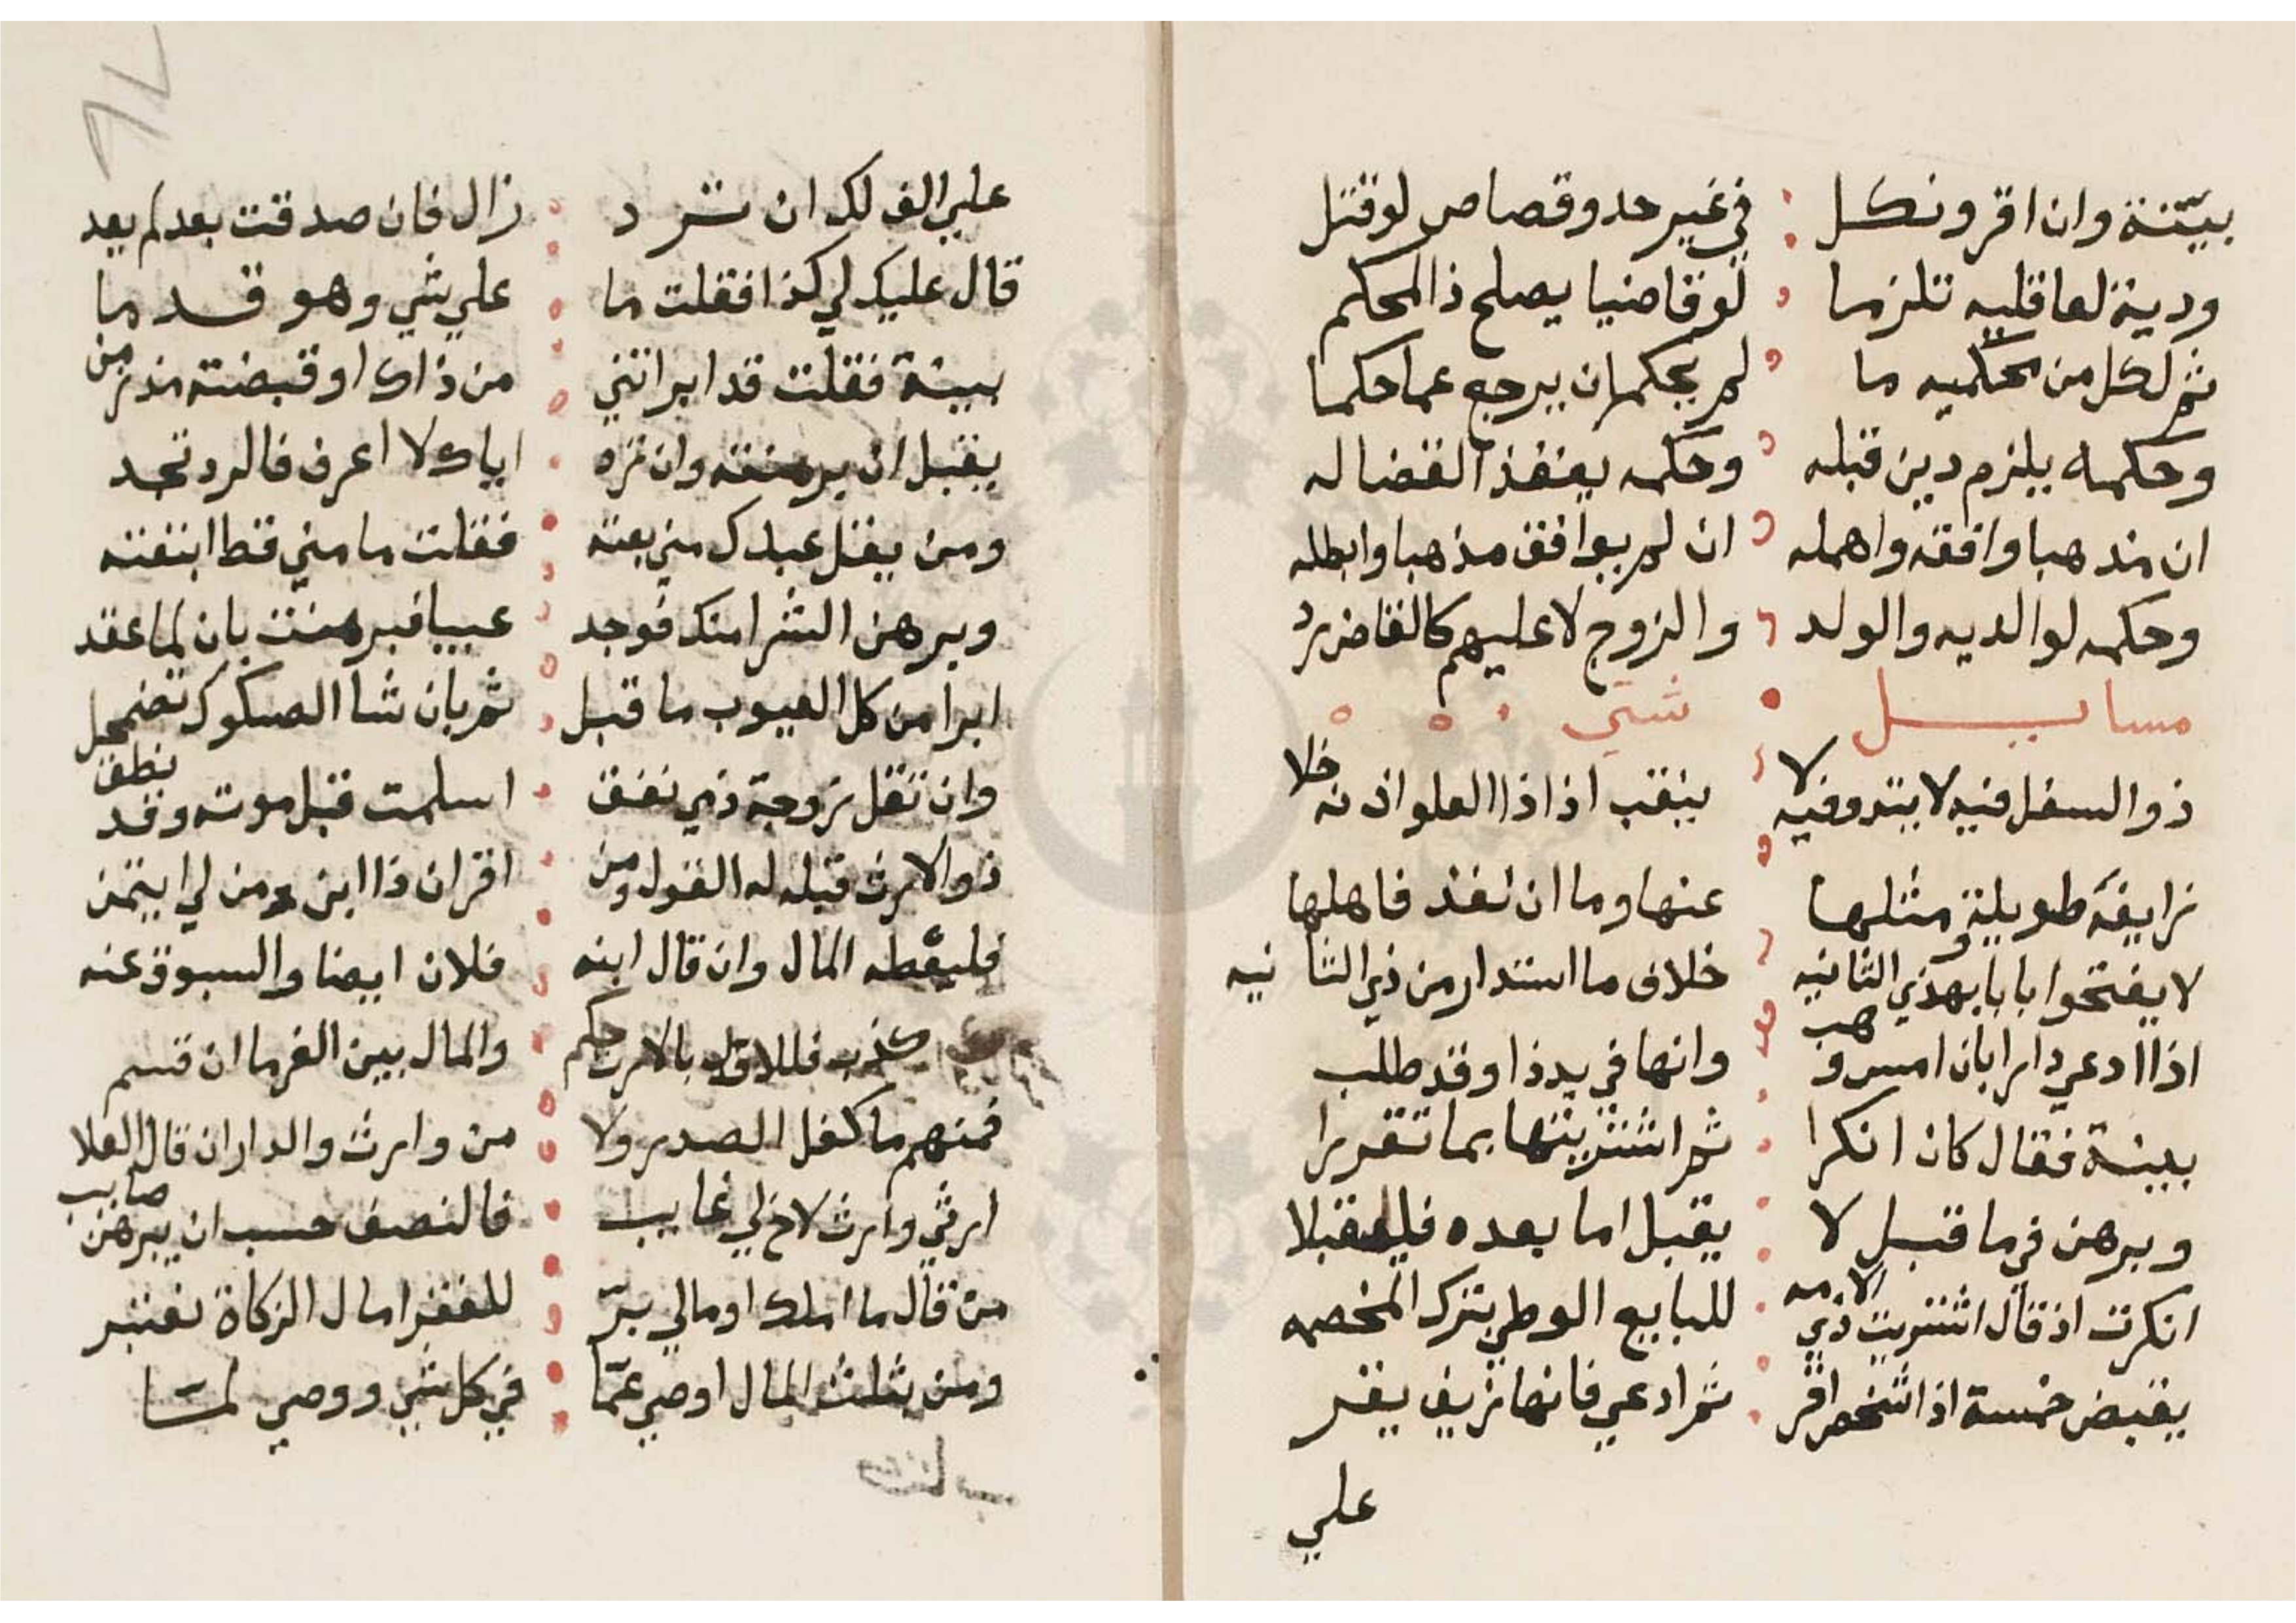 بيّنة وان اقر ونكل في غير حد وقصاص لو قتل
ودية لعاقليه تلزما لو قاضيا يصلح ذا المحكم
ثم لكل من محكميه ما لم يحكما ان يرجع عما حكما
وحكمه يلزم دين قبله وحكمه ينفذ القضا له
ان مذهبا وافقه واهمله ان لم يوافق مذهبا وابطله
وحكمه لوالديه والولد والزوج لا عليهم كالقاض رد
مسايل شتي
ذو السفل فيه لا يتد وفيه لا ينقب اذا ذا العلو اذنه خلا
زايغة طويلة ومثلها عنها وما ان نفذ فاهلها
لا يفتحوا بابا بهذي الثانيه خلاف ما استدار من ذي الثانيه
اذا ادعي دارا بان امس وهب وانها في يد ذا وقد طلب
بينة فقال كان انكرا ثم اشتريتها بما تقررا
وبرهن في ما قبل لا يقبل اما بعده فليقبلا
انكرت اذ قال اشتريت ذي الامه للبايع الوطي بترك المخصمه
يقبض خمسة اذا شخص اقر ثم ادعي فانها تزيف يقر
علي
علي الف لك ان ترد زال فان صدقت بعد لم يعد
قال عليك لي كذا فقلت ما علي شي وهو قد ما
بينة فقلت قد ابراتني من ذاك او قبضته مذ زمن
يقبل ان برهنته وان تزه اياك لا اعرف فالرد تجد
ومن يقل عبدك مني بعته فقلت ما مني قط ابتعته
وبرهن الشرا منك فوجد عيبا فبرهنت بان لما عقد
ابرا من كل العيوب ما قبل ثم بان شا الصكوك تضمحل
وان تقل زوجة ذمي نفق اسلمت قبل موته وقد نطق
ذو الارث قبله له القول ومن اقر ان ذا ابن من لي ايتمن
فليعطه المال وان قال ابنه فلان ايضا والسبوق عنه
كذب فللاول بالارث حكم والمال بين الغرما ان قسم
فمنهم ما كفل الصدر ولا من وارث والدار ان قال العلا
ارثي وارث لاخ لي غايب فالنصف حسب ان يبرهن صايب
من قال ما املك او مالي برّ للفقرا مال الزكاة نعتبر
ومن بثلث المال اوصي عمّا في كل شي ووصي لمّا